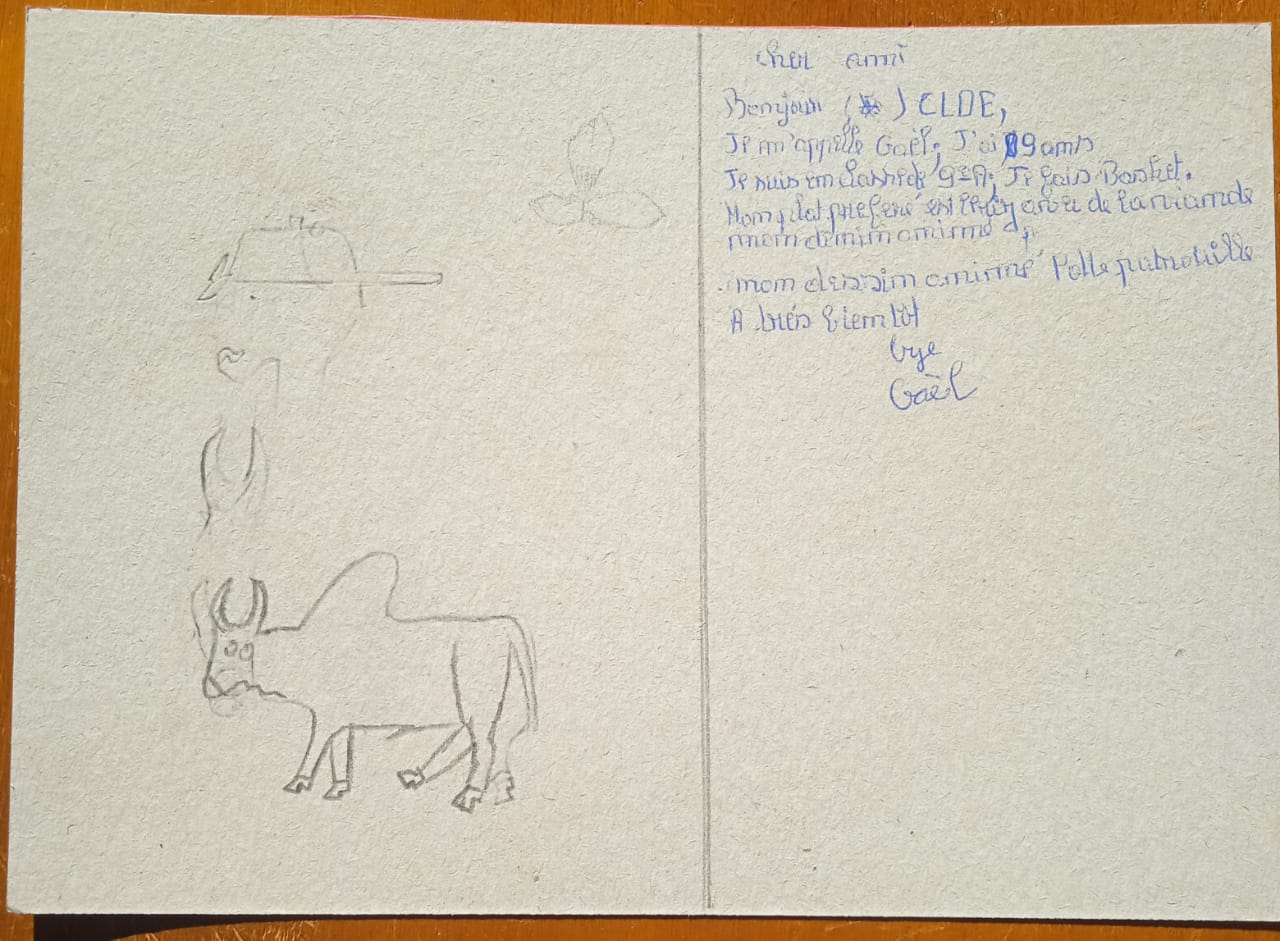 cher ami
Bonjour ( ) CLOE,
Je m'appelle Gaël; J'ai 9 ans
Je suis en classe de 9è A; Je fais Basket.
Mon plat préféré est le riz avec de la viande
mon démin animé
mon dessin animé Patte patrouille
A très bientôt
bye
Gaël